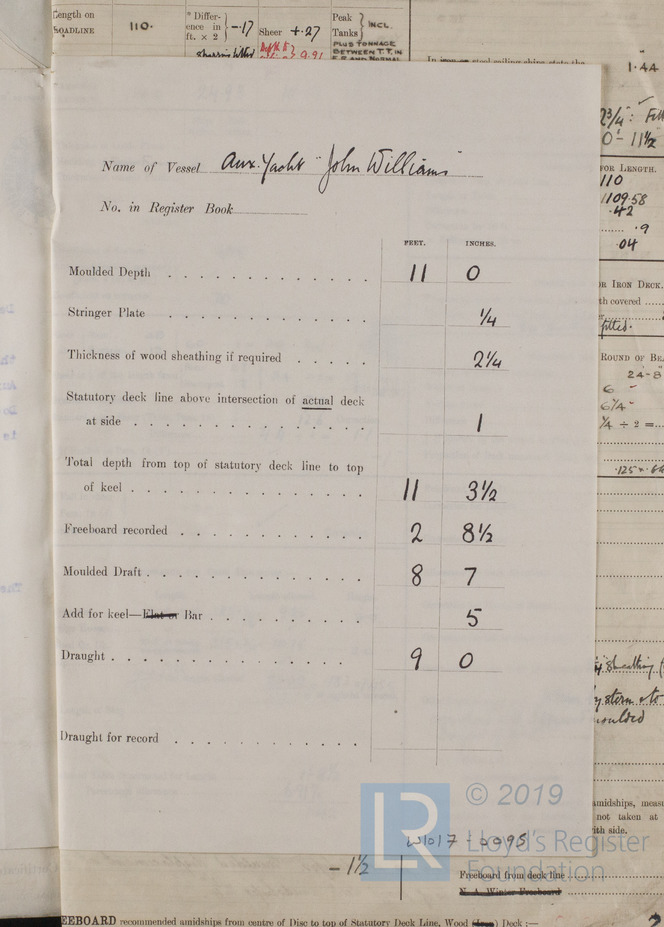 Length on
LOADLINE
110.
* Differ-
ence in
ft. × 2
-.17
Sheer +.27
Peak
Tanks
INCL.
PLUS TONNAGE
BETWEEN T.T. IN
0.91
1.44
Name of Vessel Aux. Yacht "John Williams"
No. in Register Book
FEET. INCHES.
Moulded Depth 11 0
Stringer Plate 1/4
Thickness of wood sheathing if required 2 1/4
Statutory deck line above intersection of actual deck
at side 1
Total depth from top of statutory deck line to top
of keel 11 3 1/2
Freeboard recorded 2 8 1/2
Moulded Draft 8 7
Add for keel—Flat or Bar 5
Draught 9 0
Draught for record
2 3/4":
0'- 11 1/2
FOR LENGTH.
110
1109.58
.42
.9
.04
OR IRON DECK.
th covered
fitted.
ROUND OF BEA
24-8
6
6 1/4
1/4 ÷ 2 =
.125 ×
sheathing
stern
moulded
amidships, meas
not taken at
with side.
© 2019
LR
Lloyd's Register
Foundation
W1017-0095
- 1 1/2
Freeboard from deck line
N. A. Winter Freeboard
EEBOARD recommended amidships from centre of Disc to top of Statutory Deck Line, Wood (Iron) Deck :—